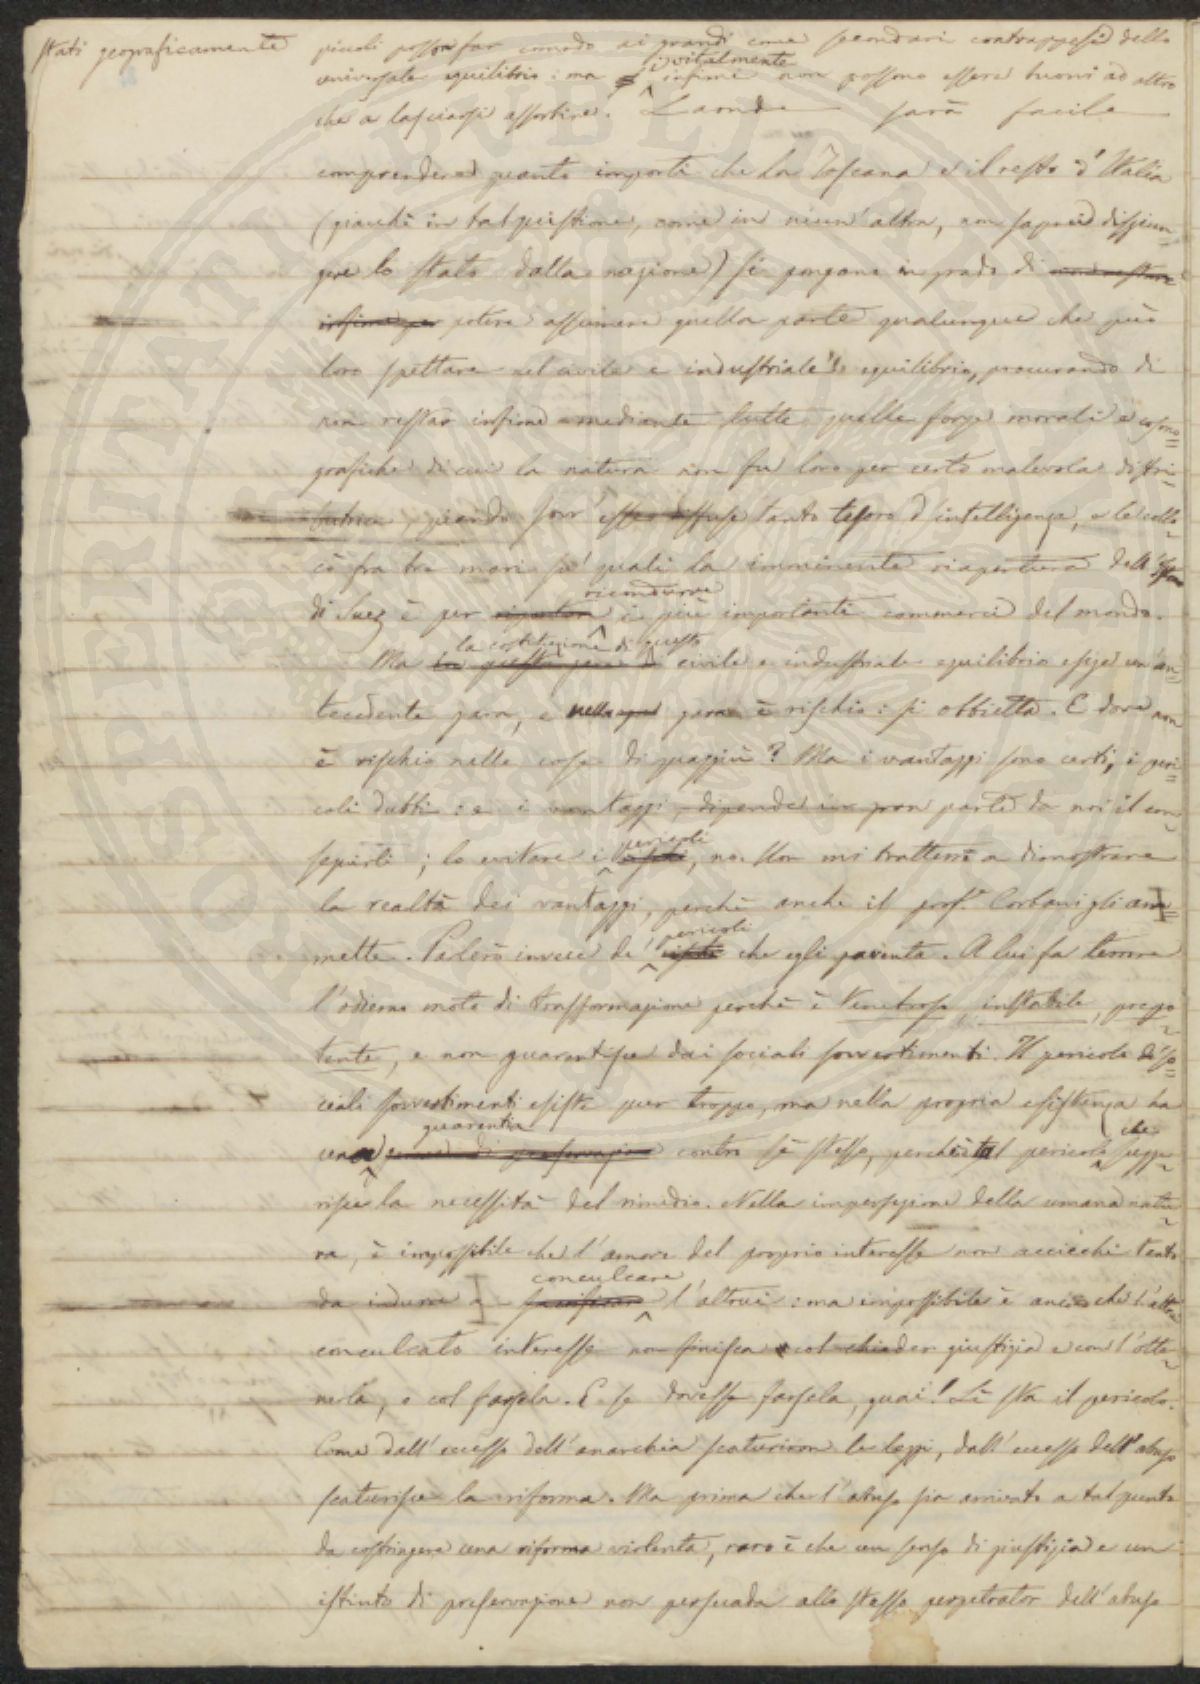 Stati geograficamente piccoli posson far comodo ai grandi come secondari contrappesi dello
universale equilibrio: ma i vitalmente infimi non possono essere buoni ad altro
che a lasciarsi assorbire. Laonde sarà facile
comprendere quanto importi che la Toscana e il resto d'Italia
(giacchè in tal quistione, come in niun'altra, non saprei disgiun=
gere lo stato dalla nazione) si pongano in grado di non restare
infime per potere assumere quella parte qualunque che può
loro spettare nel civile e industriale equilibrio, procurando di
non restar infime mediante tutte quelle forze morali e cosmo=
grafiche di cui la natura non fu loro per certo malevola distri=
butrice, quando sovr'esse diffuse tanto tesoro d'intelligenza, e le collo=
cò fra tre mari pe' quali la imminente riapertura dell'Istmo
di Suez è per ricondurre i più importanti commerci del mondo.
Ma la costituzione di questo civile e industriale equilibrio esige un'an=
tecedente gara, e nella gara è rischio: si obbietta. E dove non
è rischio nelle cose di quaggiù? Ma i vantaggi sono certi, i peri=
coli dubbi: e i vantaggi, dipende in gran parte da noi il con=
seguirli; lo evitare i pericoli, no. Non mi tratterrò a dimostrare
la realtà dei vantaggi, perchè anche il prof.r Corbani gli am=
mette. Parlerò invece de' pericoli che egli paventa. A lui fa terrore
l'odierno moto di trasformazione perchè è Venetroso, instabile, prepo=
tente, e non guarentisce dai sociali sovvertimenti. Il pericolo di so=
ciali sovvertimenti esiste pur troppo, ma nella propria esistenza ha
una guarentia contro sè stesso, perchè tal pericolo che sugge=
risce la necessità del rimedio. Nella imperfezione della umana natu=
ra, è impossibile che l'amore del proprio interesse non accicchi tanto
da indurre a conculcare l'altrui: ma impossibile è anco che l'altrui
conculcato interesse non finisca col chieder giustizia e con l'otte=
nerla, o col farsela. E se dovesse farsela, guai! Lì sta il pericolo.
Come dall'eccesso dell'anarchia scaturiron le leggi, dall'eccesso dell'abuso
scaturisce la riforma. Ma prima che l'abuso sia arrivato a tal punto
da costringere una riforma violenta, raro è che un senso di giustizia e un
istinto di preservazione non persuada allo stesso perpetrator dell'abuso